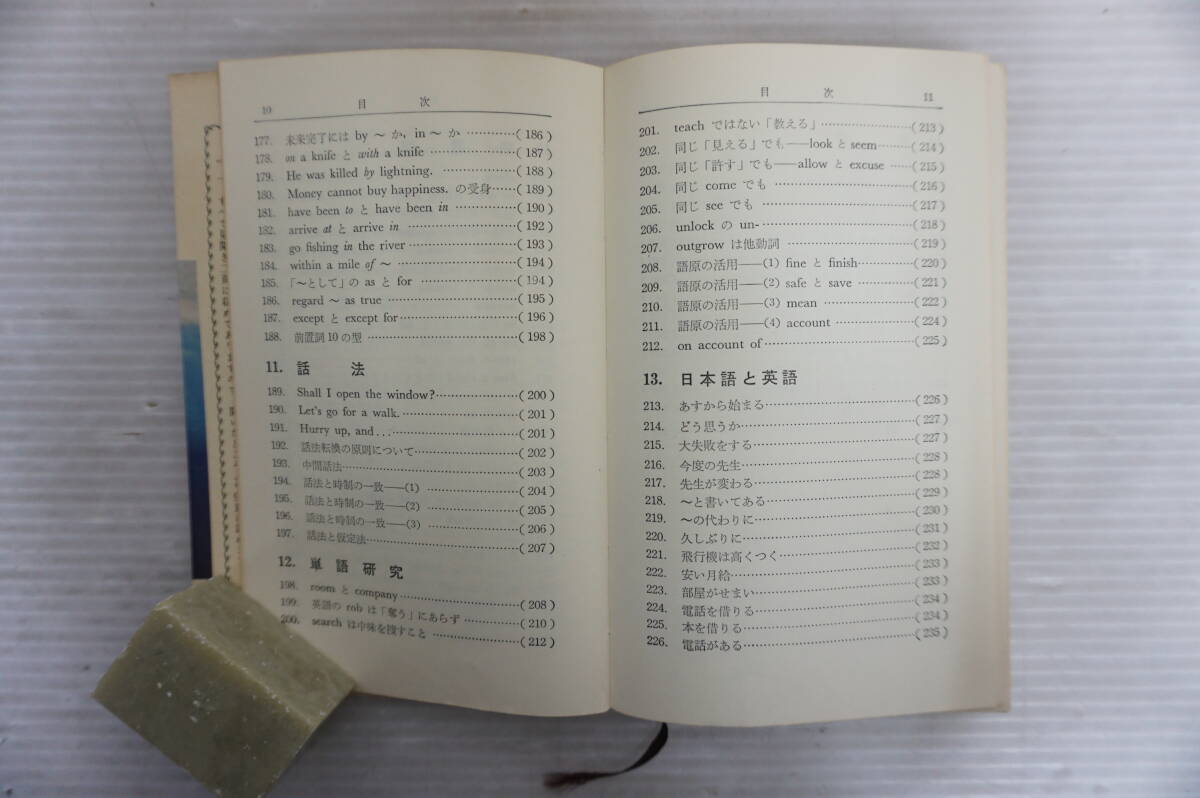 10 目次
177. 未来完了には by ～ か, in ～ か …………(186)
178. on a knife と with a knife …………(187)
179. He was killed by lightning. …………(188)
180. Money cannot buy happiness. の受身……(189)
181. have been to と have been in …………(190)
182. arrive at と arrive in …………(192)
183. go fishing in the river…………(193)
184. within a mile of ～ …………(194)
185. 「～として」の as と for …………(194)
186. regard ～ as true …………(195)
187. except と except for…………(196)
188. 前置詞10の型 …………(198)
11. 話法
189. Shall I open the window?…………(200)
190. Let's go for a walk. …………(201)
191. Hurry up, and ...…………(201)
192. 話法転換の原則について…………(202)
193. 中間話法…………(203)
194. 話法と時制の一致——(1) …………(204)
195. 話法と時制の一致——(2) …………(205)
196. 話法と時制の一致——(3) …………(206)
197. 話法と仮定法…………(207)
12. 単語研究
198. room と company…………(208)
199. 英語の rob は「奪う」にあらず …………(210)
200. search は中味を捜すこと …………(212)
目次 11
201. teach ではない「教える」…………(213)
202. 同じ「見える」でも——look と seem……(214)
203. 同じ「許す」でも——allow と excuse ……(215)
204. 同じ come でも …………(216)
205. 同じ see でも …………(217)
206. unlock の un-…………(218)
207. outgrow は他動詞 …………(219)
208. 語原の活用——(1) fine と finish…………(220)
209. 語原の活用——(2) safe と save …………(221)
210. 語原の活用——(3) mean …………(222)
211. 語原の活用——(4) account …………(224)
212. on account of…………(225)
13. 日本語と英語
213. あすから始まる…………(226)
214. どう思うか…………(227)
215. 大失敗をする…………(227)
216. 今度の先生…………(228)
217. 先生が変わる…………(228)
218. ～と書いてある…………(229)
219. ～の代わりに…………(230)
220. 久しぶりに…………(231)
221. 飛行機は高くつく…………(232)
222. 安い月給…………(233)
223. 部屋がせまい…………(233)
224. 電話を借りる…………(234)
225. 本を借りる…………(234)
226. 電話がある…………(235)